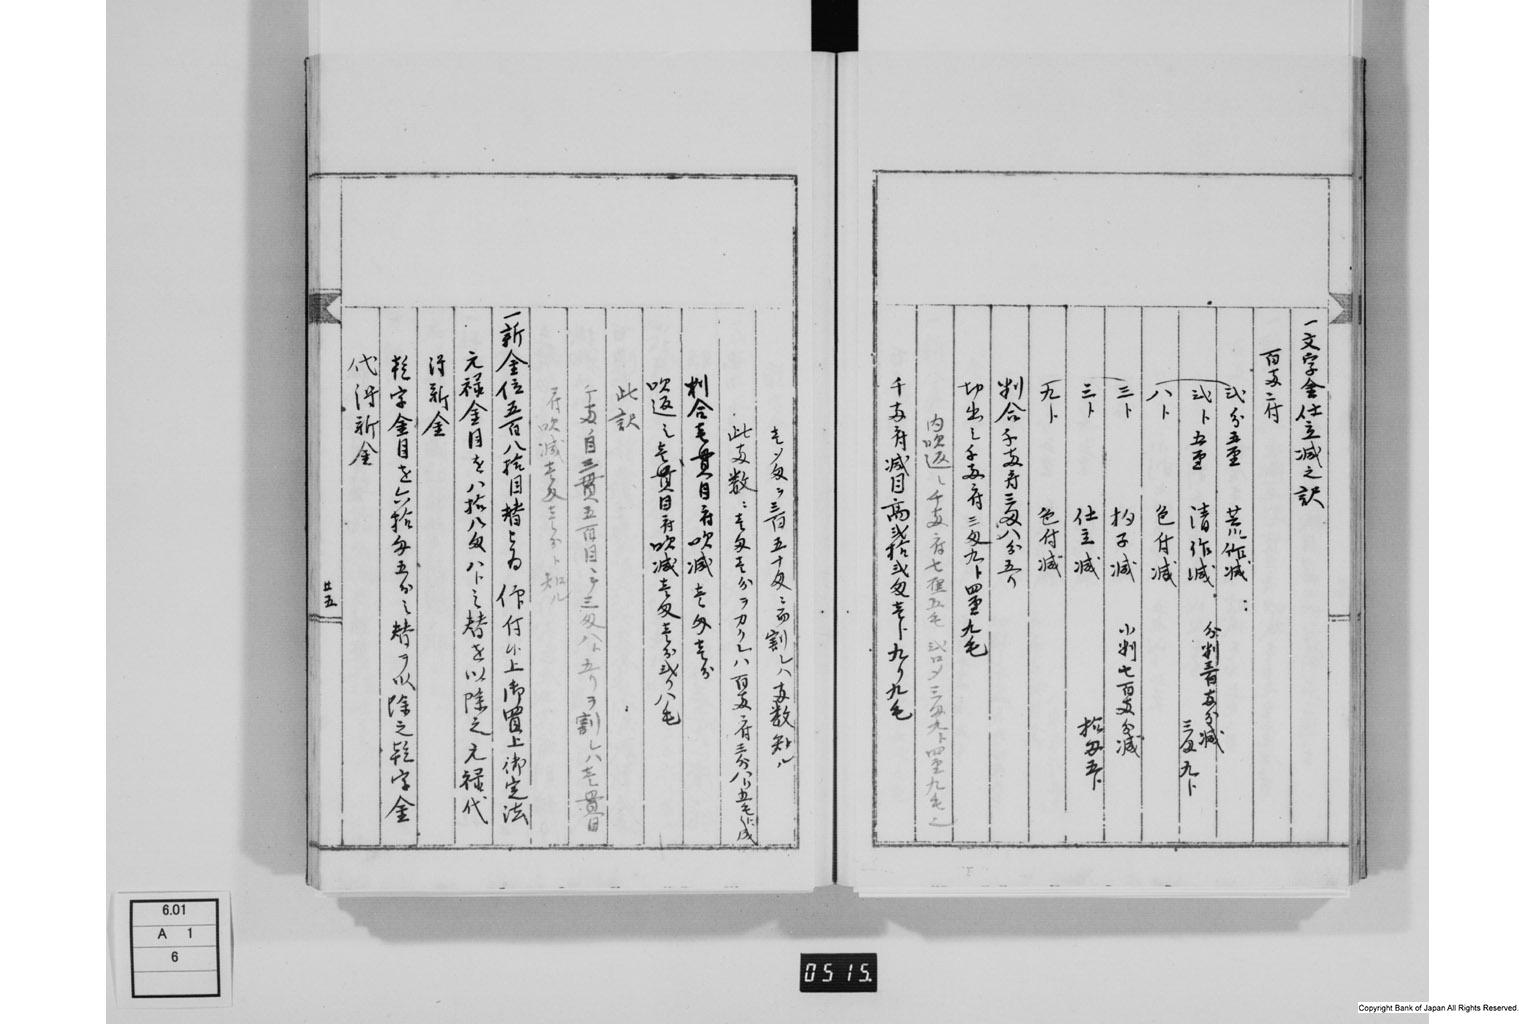 一文字金仕立減之訳
百両ニ付
弐分五厘 荒作減
弐卜五厘 清作減 分判三百両分減 三匁九卜
八卜 色付減
三卜 杓子減 小判七百両分減
三卜 仕立減 拾匁五卜
九卜 色付減
判合千両ニ付三匁八分五リ
切出し千両ニ付三匁九卜四厘九毛
内吹返し千両ニ付七厘五毛
千両ニ付減目高弐拾弐匁壱卜九リ九毛
三百五十匁ニ而割レハ両数知ル
此両数ニ壱匁壱分ヲカクレハ百両ニ付三分八リ五毛ニ成
判合壱貫目ニ付吹減壱匁壱分
吹返し壱貫目ニ付吹減壱匁壱分弐リ八毛
此訳
千両目三貫五百目ニ而三匁八卜五リヲ割レハ壱貫目
ニ付吹減壱匁壱分ト知ル
一新金位五百八拾目替与為 作付候上御買上御定法
元禄金目を八拾八匁八卜之替を以除之元禄代
得新金
乾字金目を六拾匁五分之替ヲ以除之乾字金
代得新金
廿五
6.01
A 1
6
0515.
Copyright Bank of Japan All Rights Reserved.